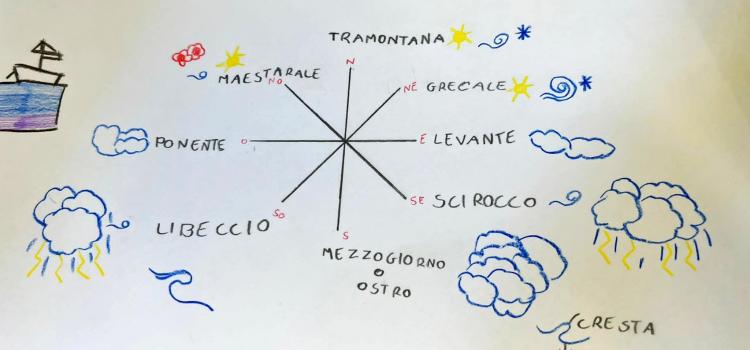 TRAMONTANA
N
MAESTARALE
NO
NE GRECALE
PONENTE
O
E LEVANTE
SE SCIROCCO
SO
LIBECCIO
S
MEZZOGIORNO
O
OSTRO
CRESTA